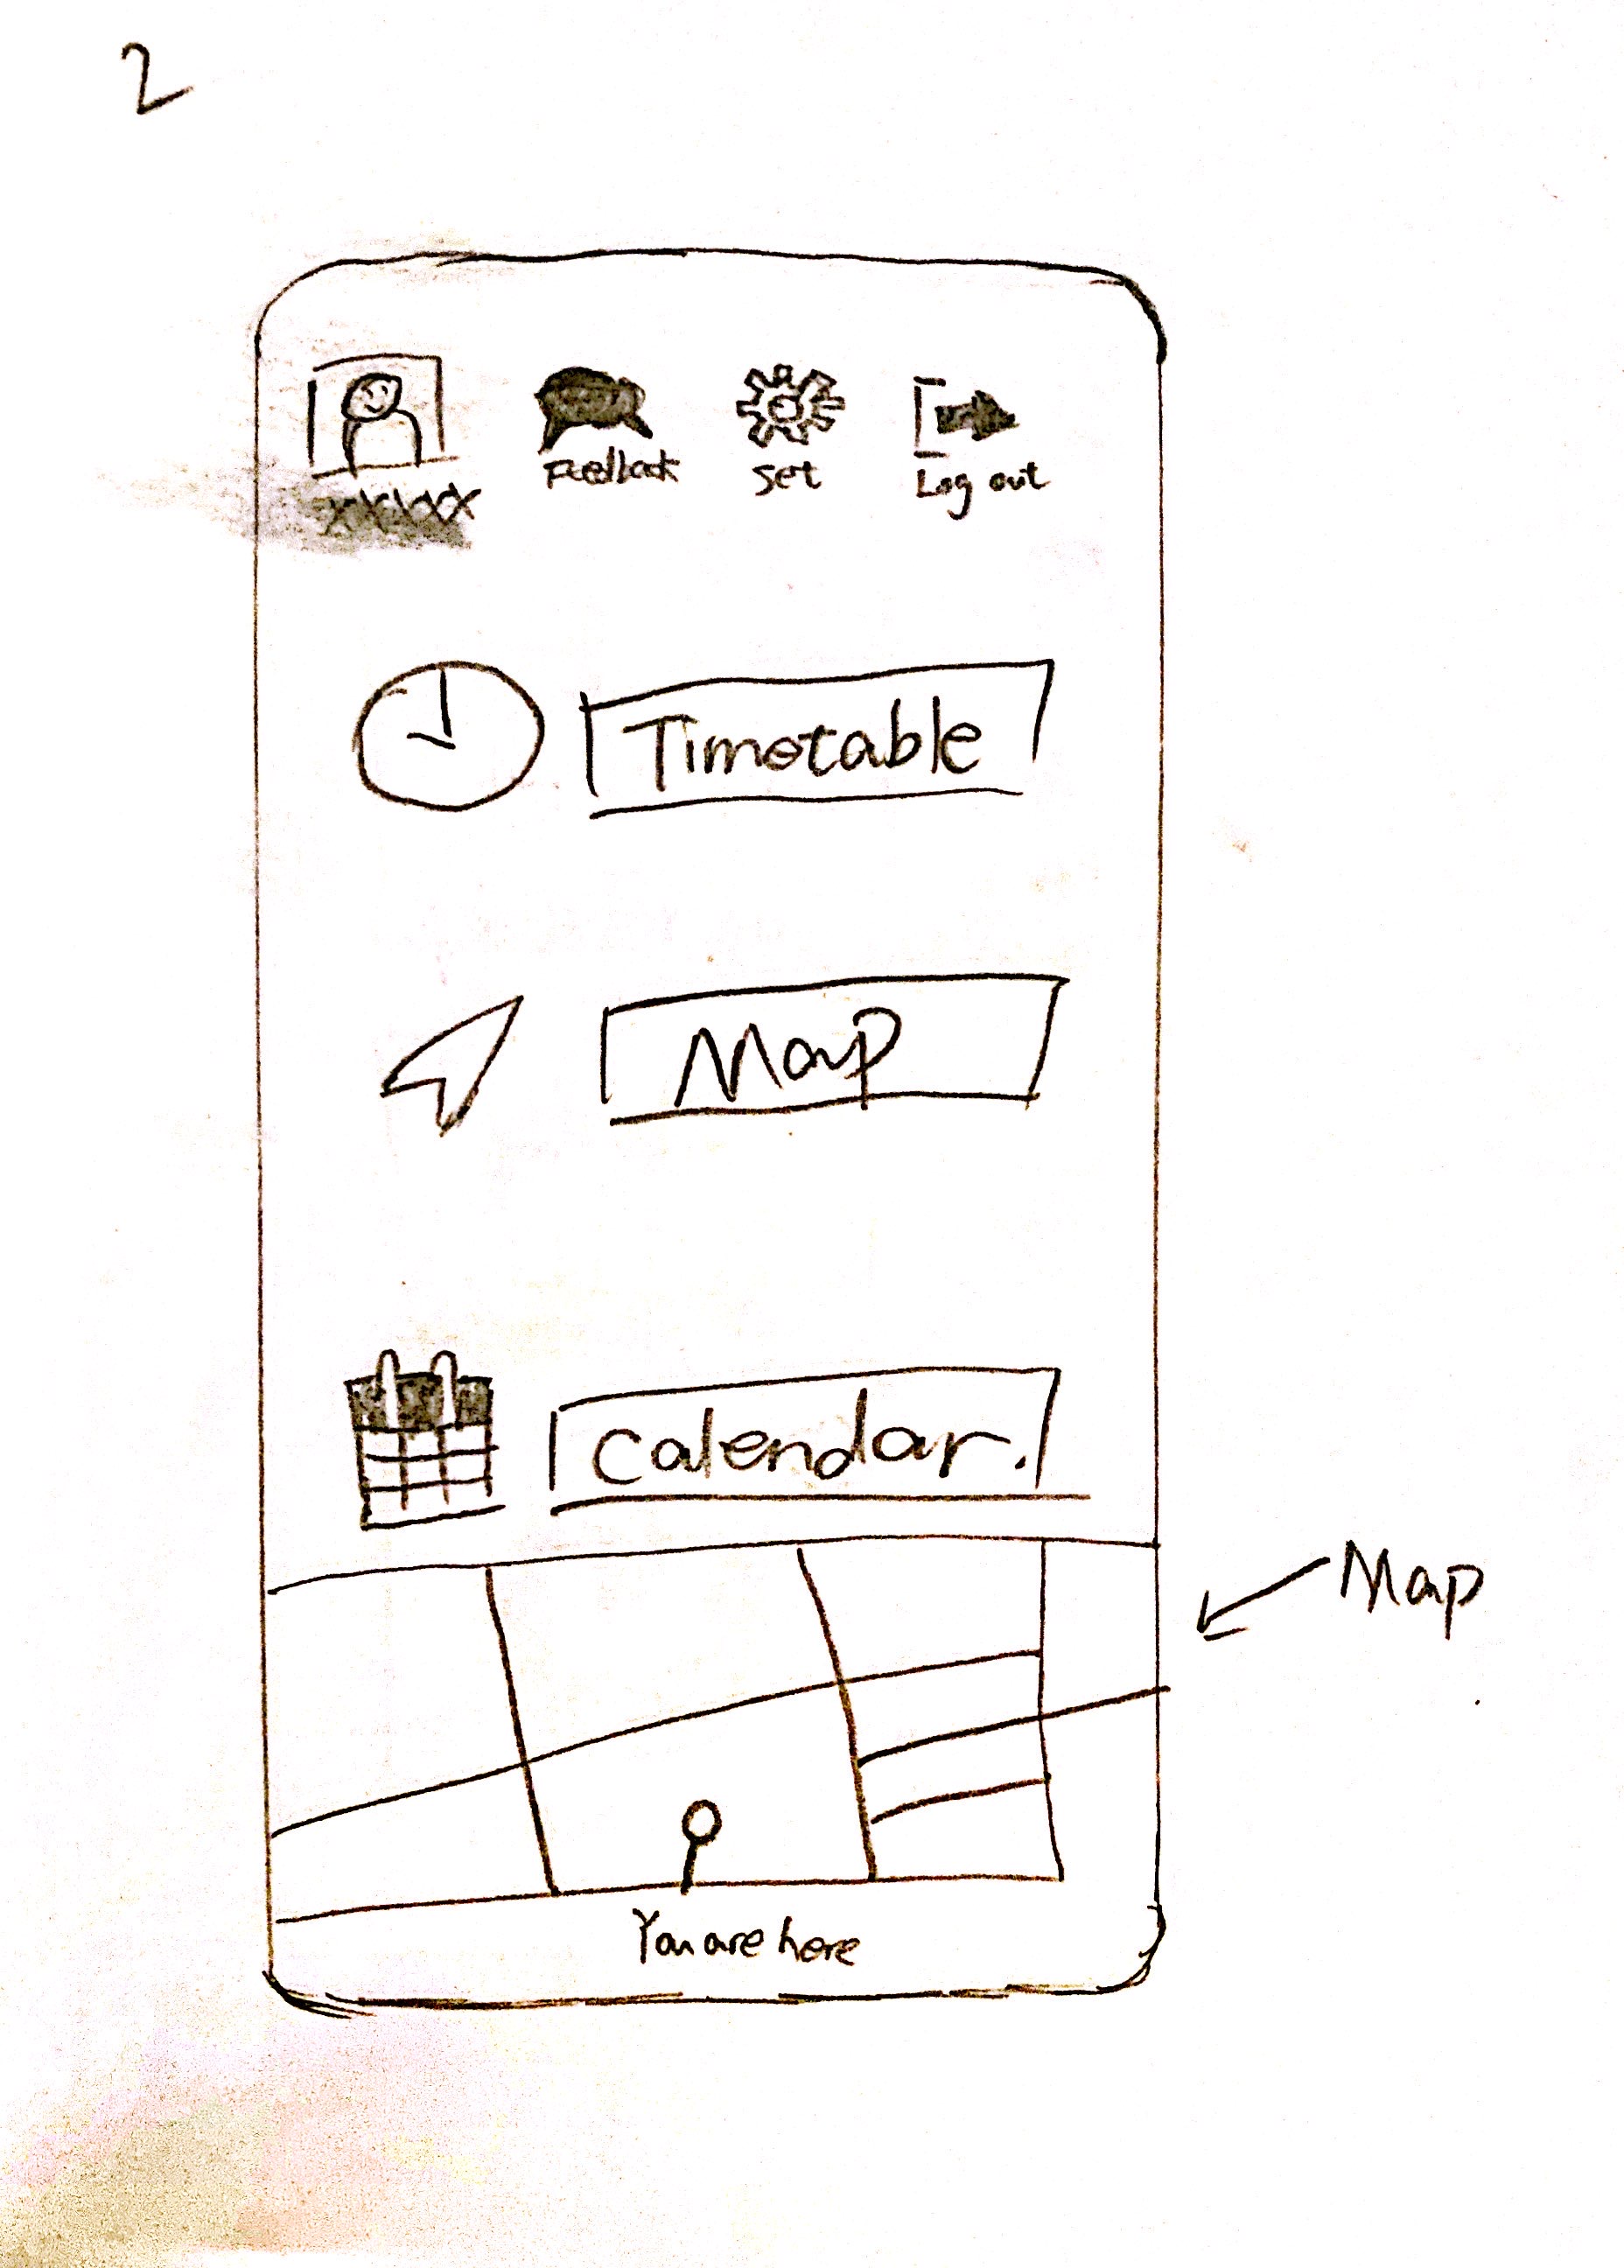 2
XXXXX
Feedback set Log out
Timetable
Map
Calendar.
Map
You are here